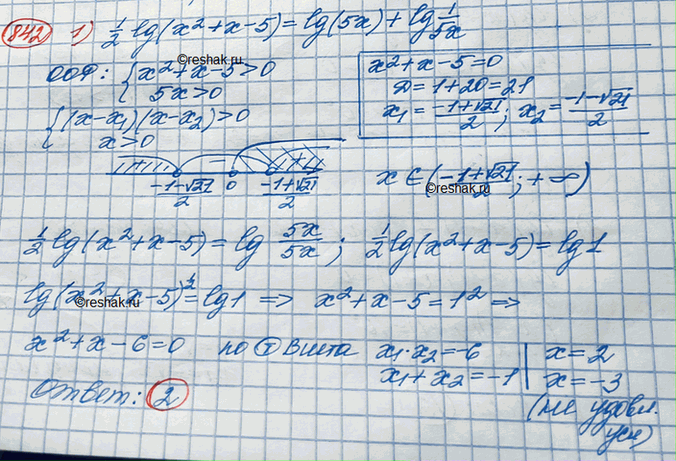 842 1) ½ lg(x²+x-5) = lg(5x) + lg 1/5x
©reshak.ru
ООФ: { x²+x-5>0
5x>0
x²+x-5=0
D=1+20=21
x₁ = (-1+√21)/2 ; x₂ = (-1-√21)/2
{ (x-x₁)(x-x₂)>0
x>0
+ - +
(-1-√21)/2 0 (-1+√21)/2
x ∈ ((-1+√21)/2 ; +∞)
©reshak.ru
½ lg(x²+x-5) = lg 5x/5x ; ½ lg(x²+x-5) = lg1
lg(x²+x-5)^½ = lg1 => x²+x-5=1² =>
©reshak.ru
x²+x-6=0 по Т Виета x₁·x₂=-6 | x=2
x₁+x₂=-1 | x=-3
(не удовл. усл)
Ответ: 2